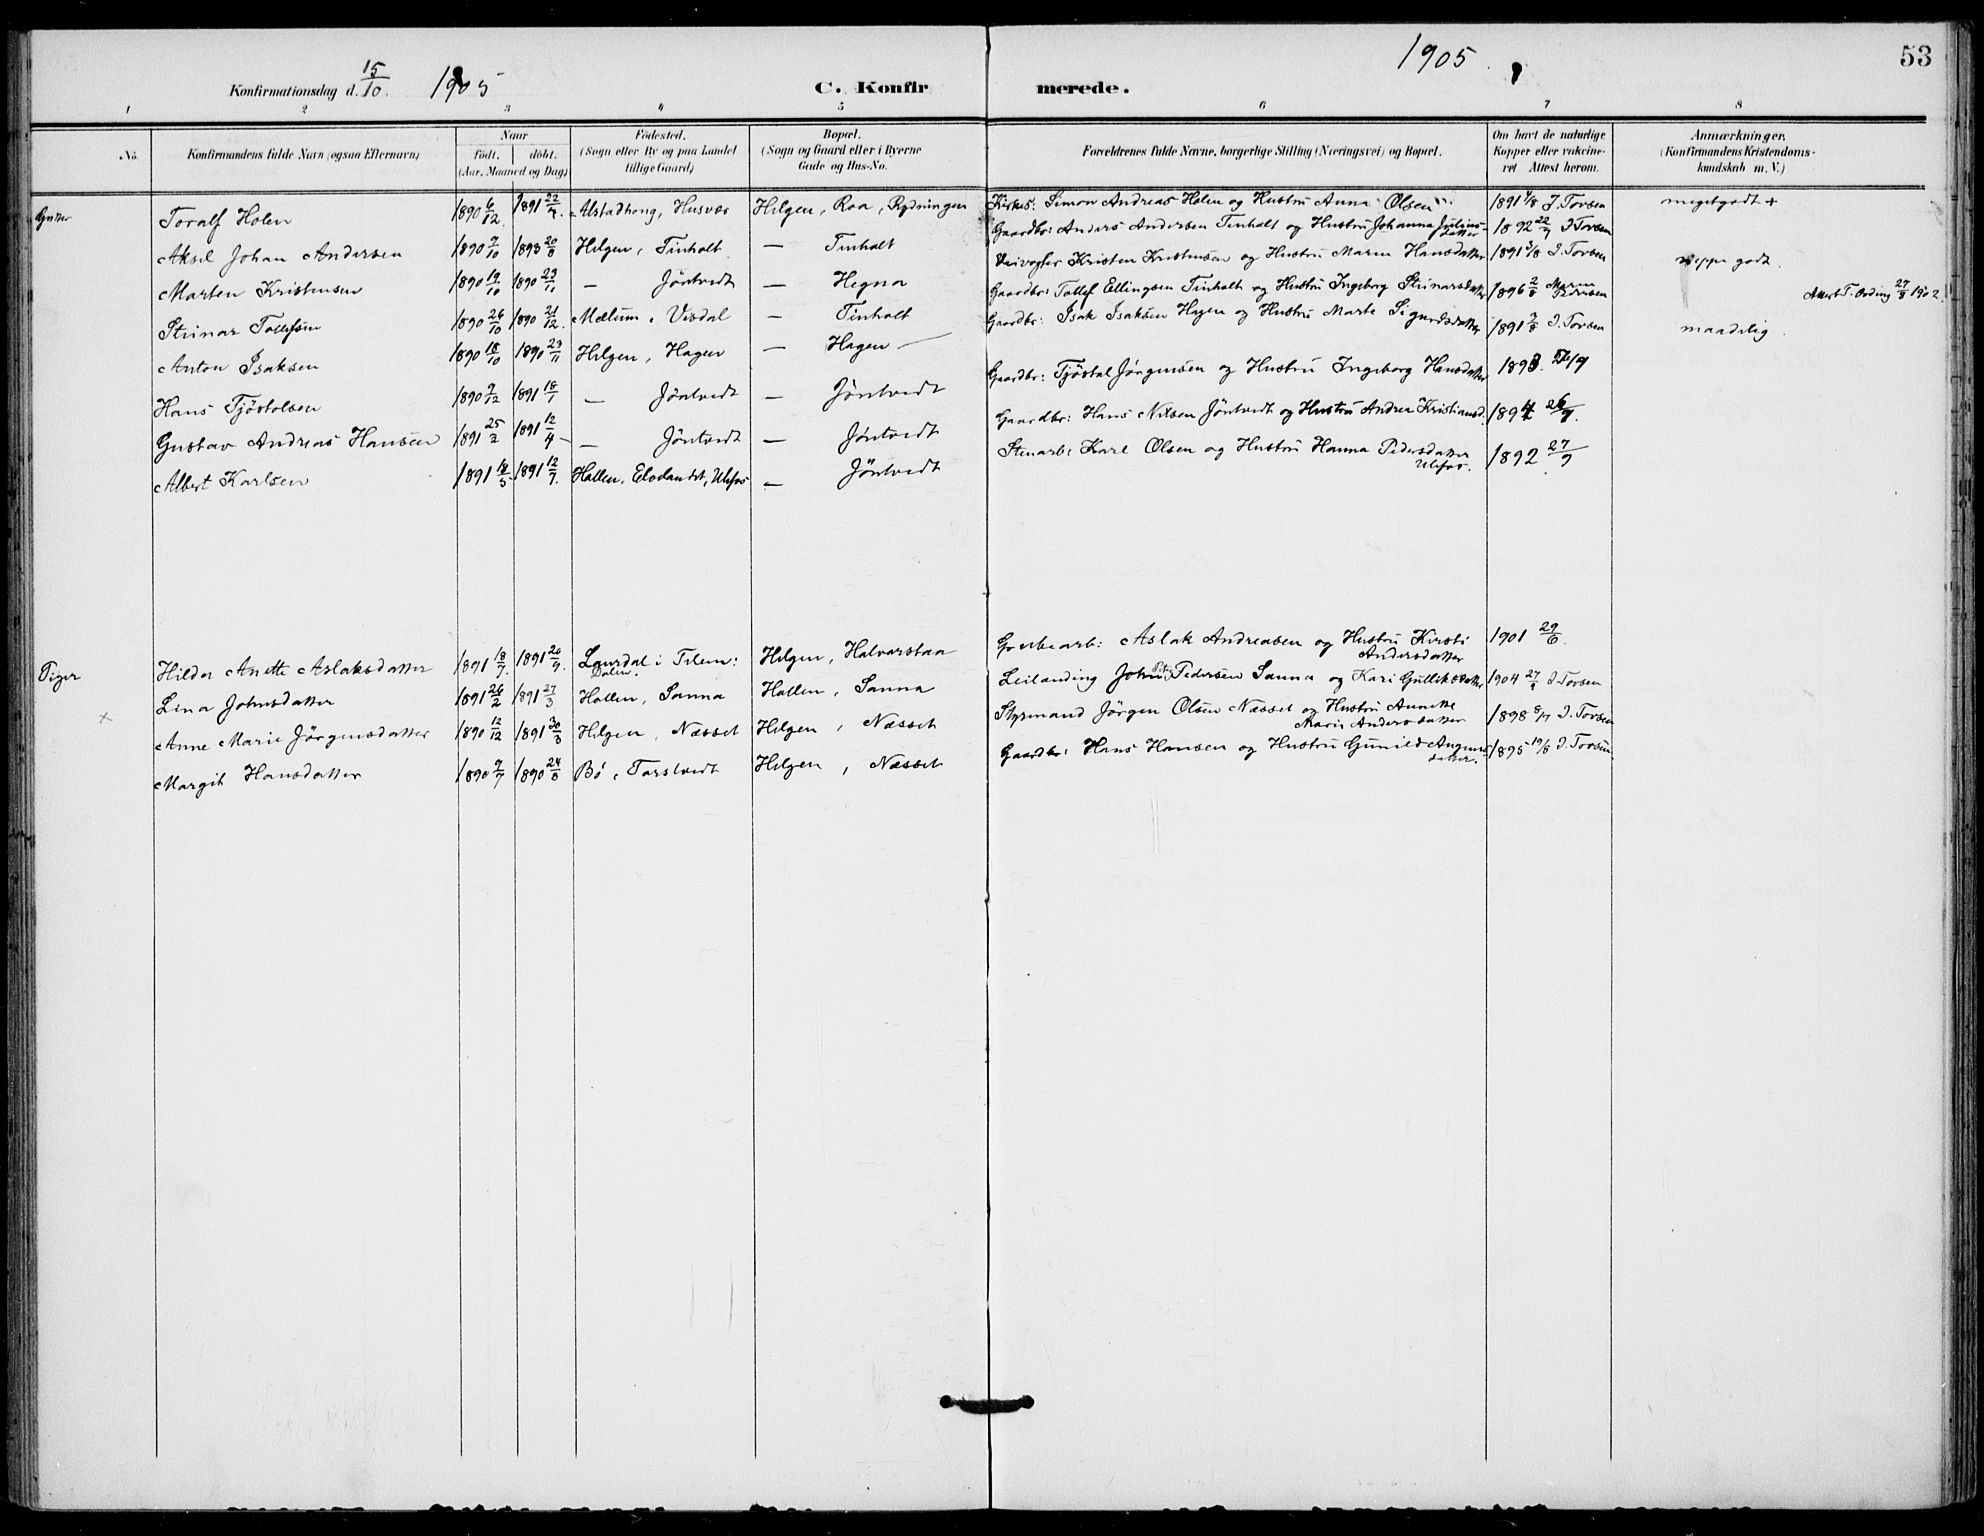 1905
53
Konfirmationsdag d. 15/10. 1905
C. Konfirmerede.
1 2 3 4 5 6 7 8
No.
Konfirmandens fulde Navn (ogsaa Efternavn)
Naar
födt. döbt.
(Aar, Maaned og Dag)
Födested.
(Sogn eller By og paa Landet
tillige Gaard)
Bopæl.
(Sogn og Gaard eller i Byerne
Gade og Hus-No.
Forældrenes fulde Navne, borgerlige Stilling (Næringsvei) og Bopæl.
Om havt de naturlige
Kopper eller vakcine-
ret Attest herom.
Anmærkninger.
(Konfirmandens Kristendoms-
kundskab m. V.)
Gutter
Toralf Holen 1890 6/12 1891 22/4. Alstadhoug, Husvær Helgen, Roa, Rydningen Kirkes: Simon Andreas Holen og Hustru Anna Olsen 1891 4/8 I. Torsen megetgodt +
Aksel Johan Andersen 1890 9/10 1893 20/8 Helgen, Tinholt — Tinholt Gaardbr: Anders Andersen Tinholt og Hustru Johanna Julius-
datter 1892 22/9 I Torsen
Marten Kristensen 1890 19/10 1890 23/11 — Jöntvedt — Hegna Veivogter Kristen Kristensen og Hustru Maren Hansdatter 1891 3/8 I. Torsen neppe godt.
Steinar Tollefsen 1890 26/10 1890 21/12. Mælum, Visdal — Tinholt Gaardbr: Tollef Ellingsen Tinholt og Hustru Ingeborg Steinarsdatter 1896 2/8 Maren Pedersen Attest T. Ording 27/8 1902.
Anton Isaksen 1890 18/10 1890 23/11 Helgen, Hagen — Hagen — Gaardbr: Isak Isaksen Hagen og Hustru Marte Sigurdsdatter 1891 2/8 I. Torsen maadelig.
Hans Tjöstolsen 1890 9/12 1891 18/1 — Jöntvedt — Jöntvedt Gaardbr: Tjöstal Jörgensen og Hustru Ingeborg Hansdatter 1893
Gustav Andreas Hansen 1891 25/2 1891 12/4 — Jöntvedt — Jöntvedt Gaardbr: Hans Nilsen Jöntvedt og Hustru Andrea Kristiansd. 1894 26/9.
Albert Karlsen 1891 18/5 1891 12/7. Hollen, Ulefos — Jöntvedt Stenarb: Karl Olsen og Hustru Hanna Pedersdatter
Ulefos. 1892 27/9
Piger
Hilda Anette Aslaksdatter 1891 18/7. 1891 26/9. Laurdal i Telem:
Dalen. Helgen, Halvarstaa Grubearb: Aslak Andreasen og Hustru Kirsti
Andersdatter 1901 29/6.
Lina Johnsdatter 1891 26/2 1891 27/3 Hollen, Sanna Hollen, Sanna Leilanding John Pedersen Sanna og Kari Gulliksdatter 1904 27/9 I. Torsen
×
Anne Marie Jörgensdatter 1890 12/12 1891 30/3 Helgen, Næsset Helgen, Næsset Styrmand Jörgen Olsen Næsset og Hustru Annette
Marie Andersdatter 1898 8/7 I. Torsen
Margit Hansdatter 1890 9/7 1890 24/8 Bö, Torstvedt Helgen, Næsset Gaardbr: Hans Hansen og Hustru Gunild Aanuns-
datter. 1895 19/8 I. Torsen